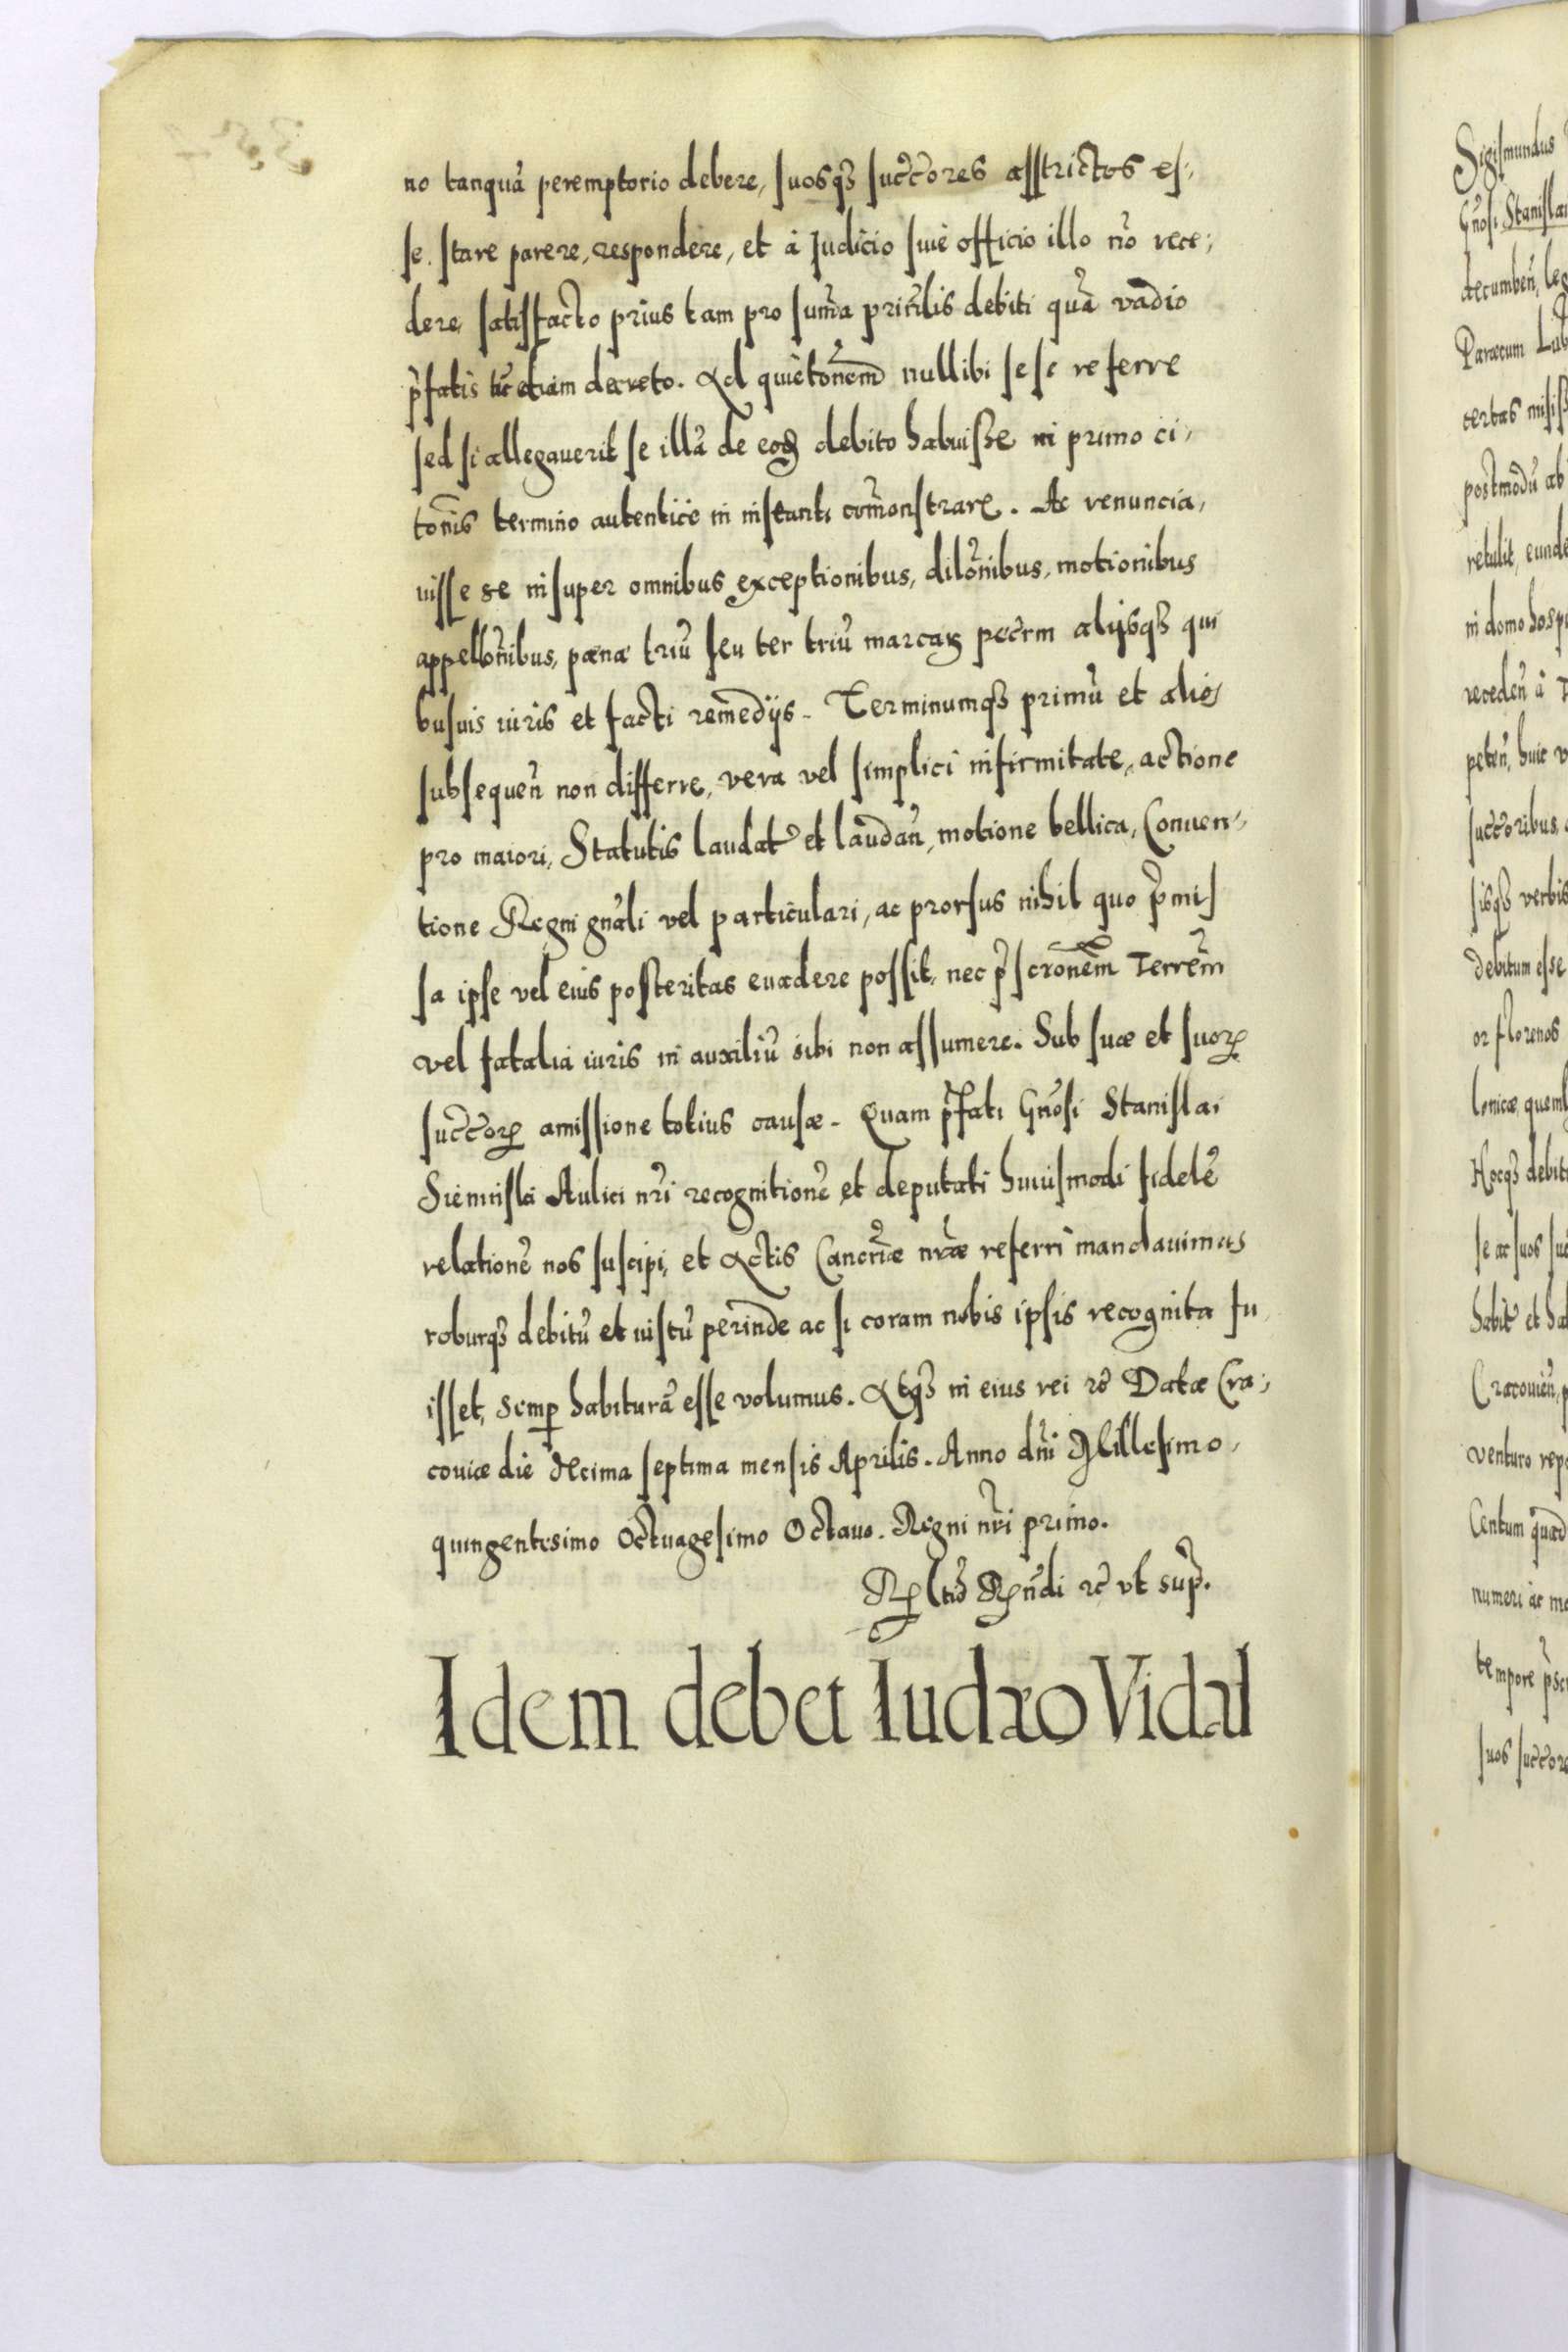 no tanquā peremptorio debere, suosqȝ succ̄ores asstrictos es-
se. stare parere, respondere, et à Iudicio siue officio illo nō rece-
dere, satisfacto prius tam pro sum̄a prin̄lis debiti quā vadio
p̄fatis etiam decreto. Ad quietōnem nullibi sese referre
sed si allegauerit se illā de eod debito habuisse in primo ci-
tōnis termino autentice in instanti com̄onstrare. Ac renuncia-
uisse se insuper omnibus exceptionibus, dilōnibus, motionibus
appellōnibus, pœnæ triū seu ter triū marcarꝝ pecrm alijsqȝ qui
busuis iuris et facti remedijs. Terminumqȝ primū et alios
subsequen̄ non differre, vera vel simplici infirmitate, actione
pro maiori, Statutis laudat̄ et laudan̄, motione bellica, Conuen-
tione Regni gn̄ali vel particulari, ac prorsus nihil quo p̄mis
sa ipse vel eius posteritas euadere possit, nec p̄scrōnem Terrēm
vel fatalia iuris in auxiliū sibi non assumere. Sub suæ et suorꝝ
succ̄orꝝ amissione totius causæ. Quam p̄fati Gn̄osi Stanislai
Siemisla Aulici nr̄i recognitionē et deputati huiusmodi fidelē
relationē nos suscipi, et Actis Cancr̄iæ nr̄æ referri mandauimus
roburqȝ debitū et iustū perinde ac si coram nobis ipsis recognita fu
isset, semꝑ habiturā esse volumus. Atqȝ in eius rei ⁊c̄ Datæ Cra-
couiæ die decima septima mensis Aprilis. Anno dn̄i Millesimo
quingentesimo Octuagesimo Octauo. Regni nr̄i primo.
Rn̄di ⁊c̄ vt sup̄.
Idem debet Iudæo Vidal
Sigismundus
Gn̄osi Stanislai
decumben̄, leg
certas
postmodū ab
retulit, eunde
in domo hospi
receden̄ à
peten̄, huic v
succ̄oribus
sisqȝ verbis
debitum esse
or florenos
lonicæ, quem
Hocqȝ debit
se ac suos suc
habit̄ et ha
Cracouien̄, p
venturo rep
Centum quad
numeri ac mo
tempore p̄sc
suos succ̄ore